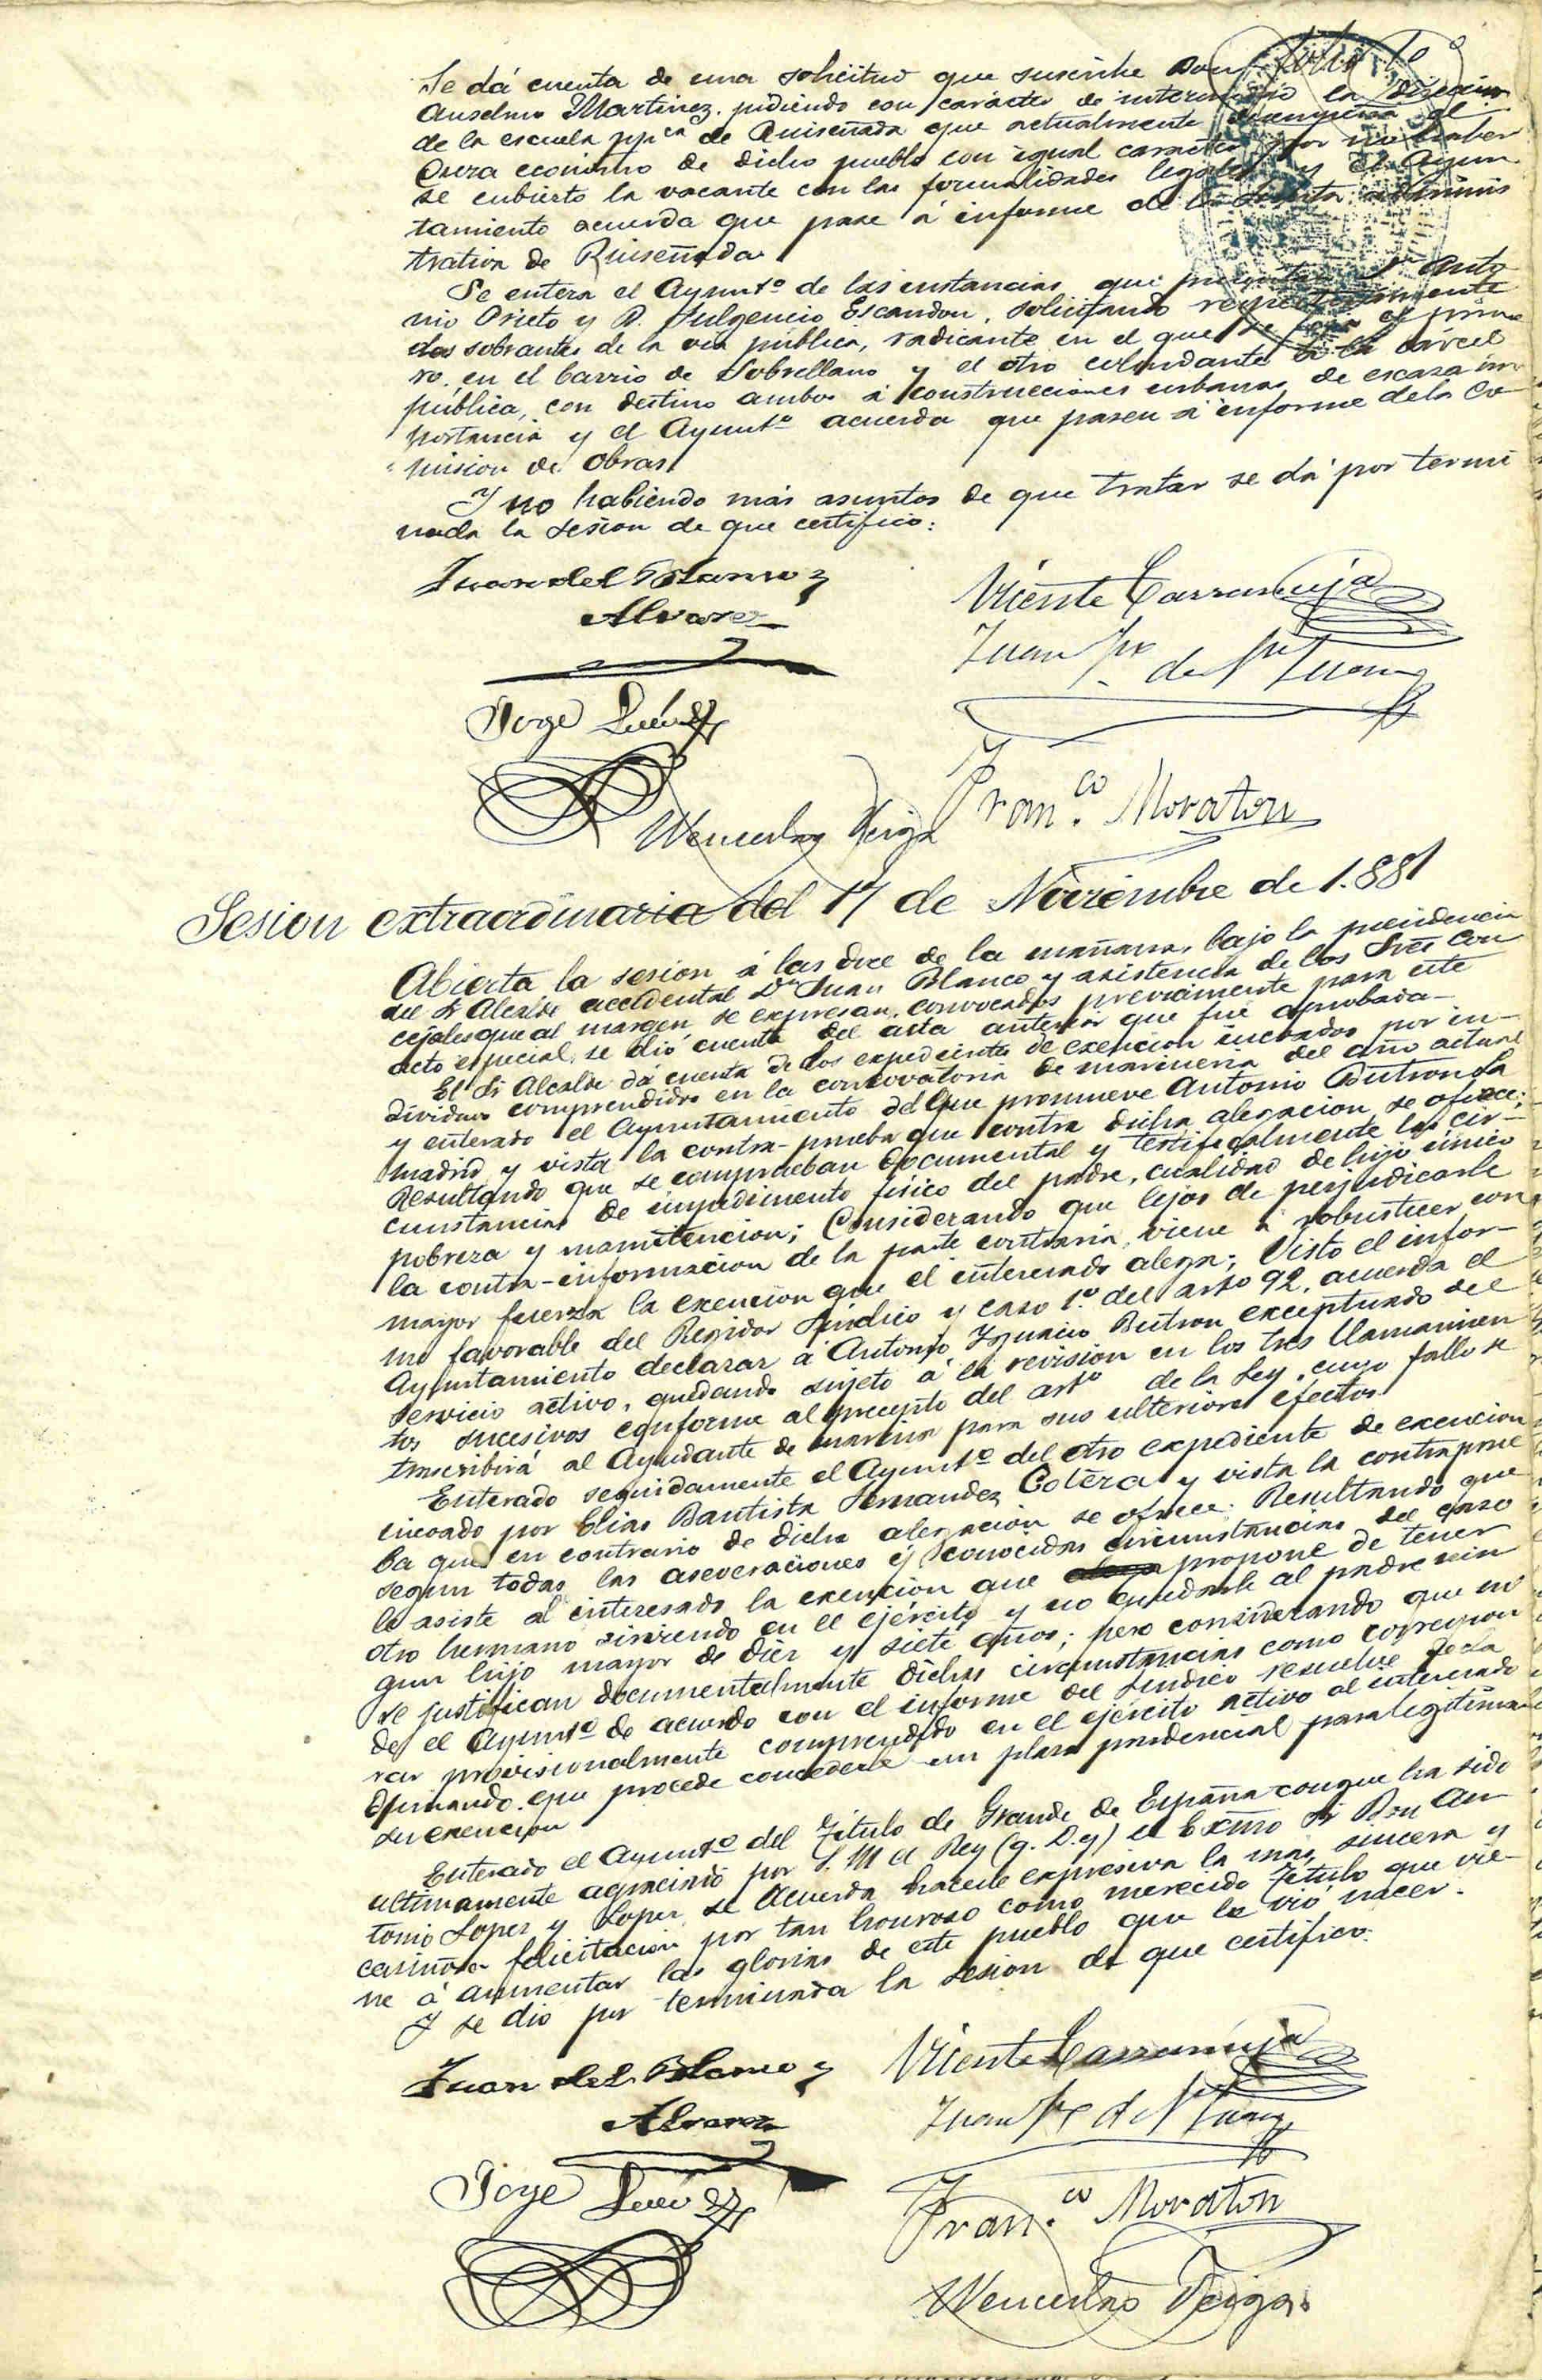 Se dá cuenta de una solicitud que suscribe Don
Anselmo Martinez, pidiendo con carácter de interinidad la dirección
de la escuela ppca de Ruiseñada que actualmente desempeña el
Cura ecónimo de dicho pueblo con igual caracter por no haber
se cubierto la vacante con las formalidades legales y el Ayun
tamiento acuerda que pase á informe de la Junta adminis
trativa de Ruiseñada.
Se entera el Ayuntº de las instancias que presentan Dn Anto
nio Prieto y D. Fulgencio Escandon, solicitando respectivamente
dos sobrantes de la via pública, radicante en el que se fija el prime
ro, en el barrio de Sobrellano y el otro colindante á la cárcel
pública, con destino ambos á construcciones urbanas de escasa im
portancia y el Ayuntº acuerda que pasen á informe dela Co
mision de Obras.
Y no habiendo más asuntos de que tratar se dá por termi
nada la sesion de que certifico:
Juan del Blanco y
Alvarez
Vicente Carranceja
Juan
de
Jorge
Franco Moraton
Wenceslao Veiga
Sesion extraordinaria del 17 de Noviembre de 1.881
Abierta la sesion á las doce de la mañana, bajo la presidencia
del Sr Alcalde accidental Dn Juan Blanco y asistencia de los Sres Con
cejales que al margen se expresan, convocados previamente para este
acto especial, se dió cuenta del acta anterior que fué aprobada-
El Sr Alcalde dá cuenta de los expedientes de exencion incoados por in-
dividuos comprendidos en la convocatoria de marineria del año actual
y enterado el Ayuntamiento del que promueve Antonio Butron La
madrid y vista la contra-prueba que contra dicha alegacion se ofrece;
Resultando que se comprueban documental y testificalmente las cir-
cunstancias de impedimento físico del padre, cualidad de hijo único
pobreza y manutencion; Considerando que lejos de perjudicarle
la contra-informacion de la parte contraria, viene á robustecer con
mayor fuerza la exencion que el interesado alega; Visto el infor-
me favorable del Regidor Síndico y caso 1.º del artº 92, acuerda el
Ayuntamiento declarar á Antonio Ignacio Butron exceptuado del
servicio activo, quedando sujeto á la revision en los tres llamamien
tos sucesivos conforme al precepto del artº de la Ley, cuyo fallo se
trascribirá al Ayudante de marina para sus ulteriores efectos.
Enterado seguidamente el Ayuntº del otro expediente de exencion
incoado por Elias Bautista Fernandez Cotera y vista la contraprue
ba que en contrario de dicha alegacion se ofrece: Resultando que
segun todas las aseveraciones y conocidas circunstancias del caso
le asiste al interesado la exencion que propone de tener
otro hermano sirviendo en el ejército y no quedarle al padre nin
gun hijo mayor de diez y siete años; pero considerando que no
se justifican documentalmente dichas circunstancias como correspon
de, el Ayuntº de acuerdo con el informe del Síndico resuelve decla
rar provisionalmente comprendido en el ejército activo al interesado
Opinando que procede concederle un plazo prudencial para legitimar
su exencion
Enterado el Ayuntº del Título de Grande de España con que ha sido
ultimamente agraciado por S. M el Rey (q. D. g) el Excmo Sr Don An
tonio Lopez y Lopez se Acuerda hacerle expresiva la más sincera y
cariñosa felicitacion por tan honroso como merecido Título que vie-
ne á aumentar las glorias de este pueblo que le vió nacer.
Y se dio por terminada la sesion de que certifico.
Juan del Blanco y
Alvarez
Vicente Carranceja
Juan
Jorge
Franco Moraton
Wenceslao Veiga